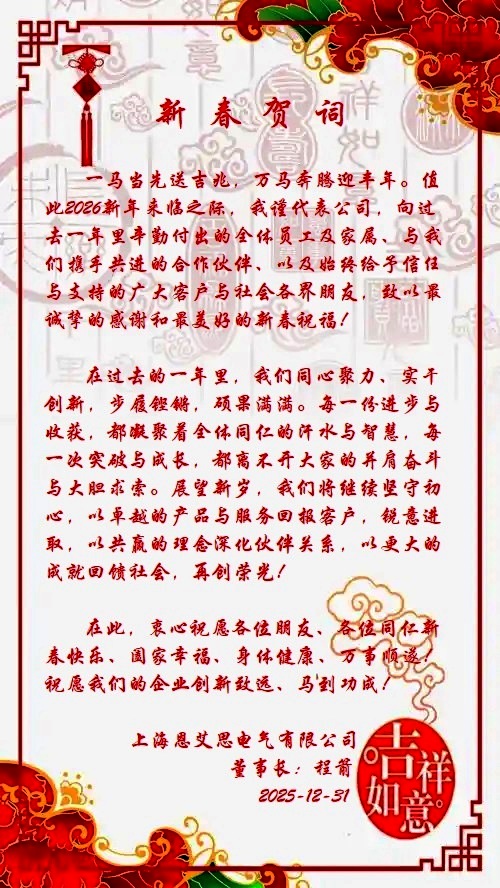 新春贺词
一马当先送吉兆，万马奔腾迎丰年。值
此2026新年来临之际，我谨代表公司，向过
去一年里辛勤付出的全体员工及家属、与我
们携手共进的合作伙伴、以及始终给予信任
与支持的广大客户与社会各界朋友，致以最
诚挚的感谢和最美好的新春祝福！
在过去的一年里，我们同心聚力、实干
创新，步履铿锵，硕果满满。每一份进步与
收获，都凝聚着全体同仁的汗水与智慧，每
一次突破与成长，都离不开大家的并肩奋斗
与大胆求索。展望新岁，我们将继续坚守初
心，以卓越的产品与服务回报客户，锐意进
取，以共赢的理念深化伙伴关系，以更大的
成就回馈社会，再创荣光！
在此，衷心祝愿各位朋友、各位同仁新
春快乐、阖家幸福、身体健康、万事顺遂，
祝愿我们的企业创新致远、马到功成！
上海恩艾思电气有限公司
董事长：程箭
2025-12-31
吉祥
如意